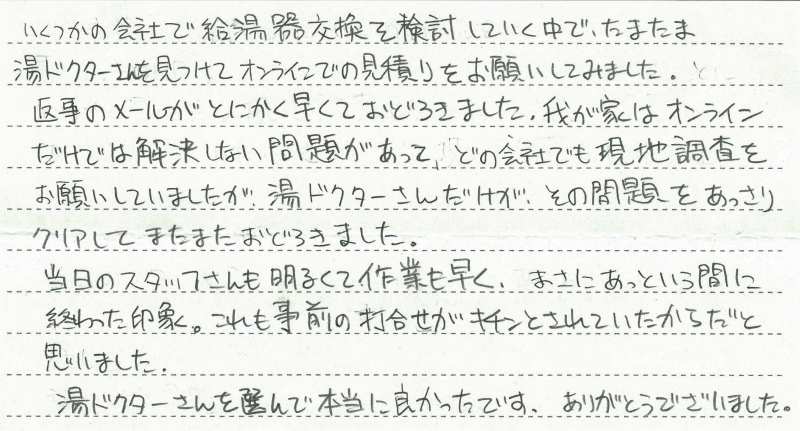 いくつかの会社で給湯器交換を検討していく中で、たまたま
湯ドクターさんを見つけてオンラインでの見積りをお願いしてみました。
返事のメールがとにかく早くておどろきました。我が家はオンライン
だけでは解決しない問題があって、どの会社でも現地調査を
お願いしていましたが、湯ドクターさんだけが、その問題をあっさり
クリアしてまたまたおどろきました。
当日のスタッフさんも明るくて作業も早く、まさにあっという間に
終わった印象。これも事前の打合せがキチンとされていたからだと
思いました。
湯ドクターさんを選んで本当に良かったです。ありがとうございました。